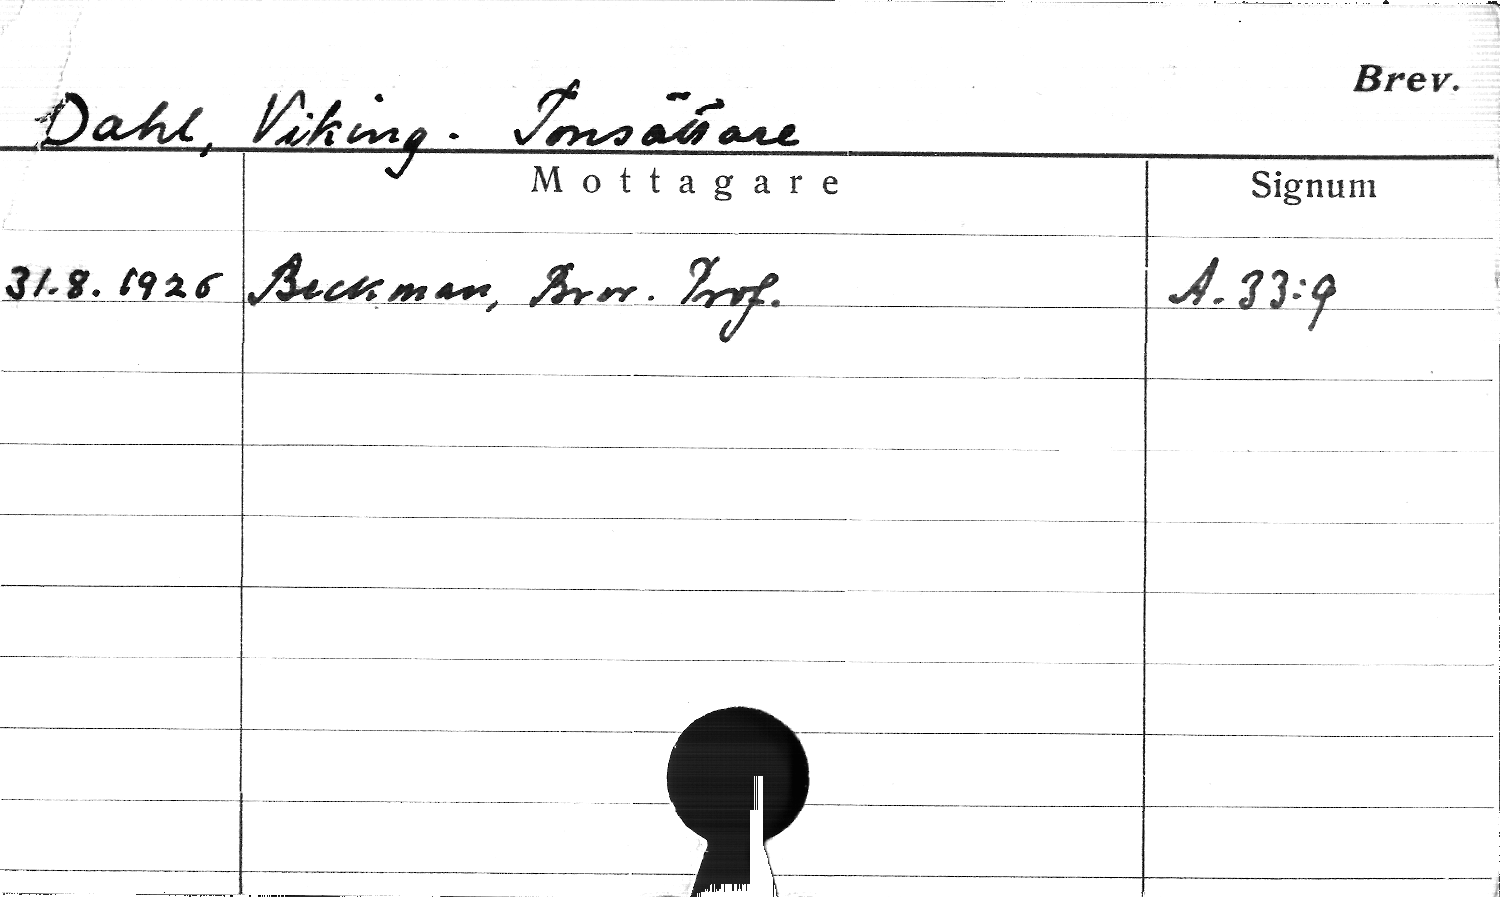 Brev.
Dahl, Viking. Tonsättare
Mottagare Signum
31.8.1926 Beckman, Bror. Prof. A. 33:9